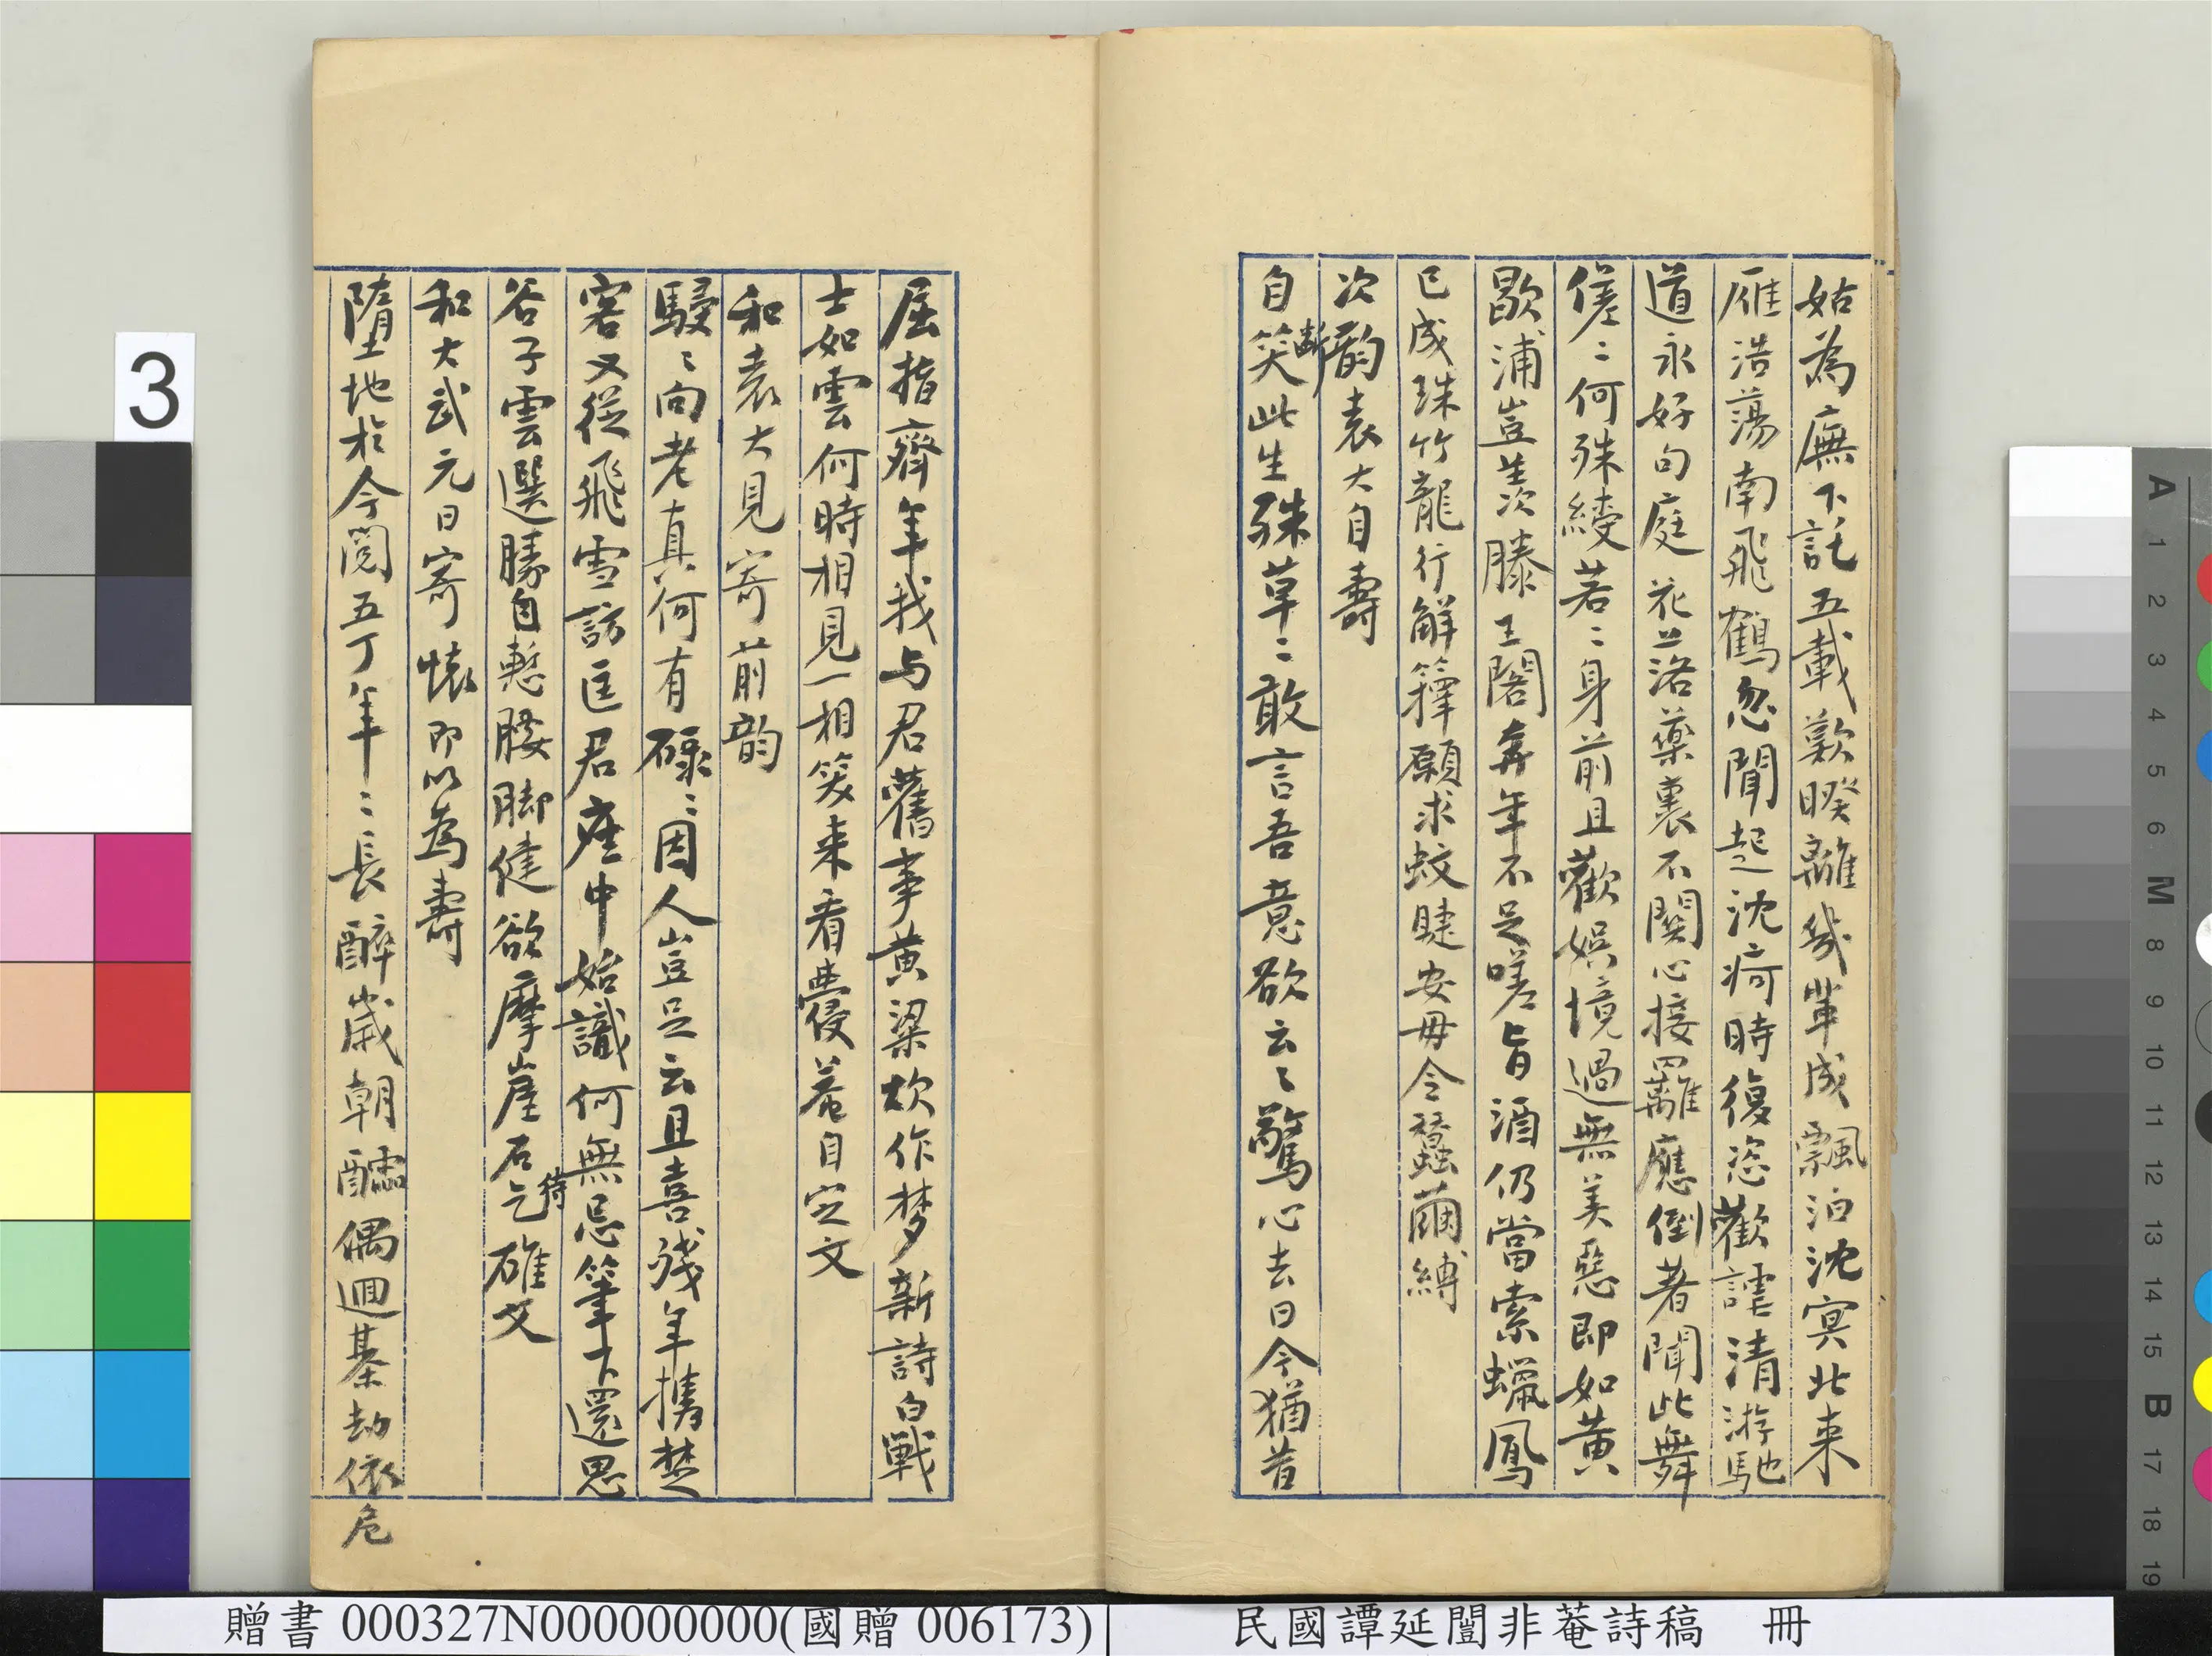 姑為廡下託五載歎暌離幾輩成飄泊沈冥北来
雁浩蕩南飛鶴忽聞起沈疴時復恣歡謔清游馳
道永好句庭花落藥裹不關心接䍦應倒著聞此舞
傞〻何殊綾若〻身前且歡娱境過無美惡即如黄
歇浦豈羨滕王閣奔年不足嗟旨酒仍當索蠟鳳
已成珠竹龍行解籜願求蚊睫安毋令蠶繭縛
次韵袁大自壽
自笑此生殊草〻敢言吾意欲云〻驚心去日今猶昔
斷
屈指齊年我与君舊事黄粱炊作梦新詩白戰
士如雲何時相見一相笑来看䢅菴自定文
和袁大見寄前韵
駸〻向老真何有碌〻因人豈足云且喜殘年携楚
客又從飛雪訪匡君座中始識何無忌筆下還思
谷子雲選勝自慙腰脚健欲摩崖石乞雄文
待
和大武元日寄懷即以為壽
墮地於今閱五丁年〻長醉歲朝醽偶迴棊劫依危
3
贈書 000327N000000000(國贈 006173)
民國譚延闓非菴詩稿 冊
A 1 2 3 4 5 6 M 8 9 10 11 12 13 14 15 B 17 18 19